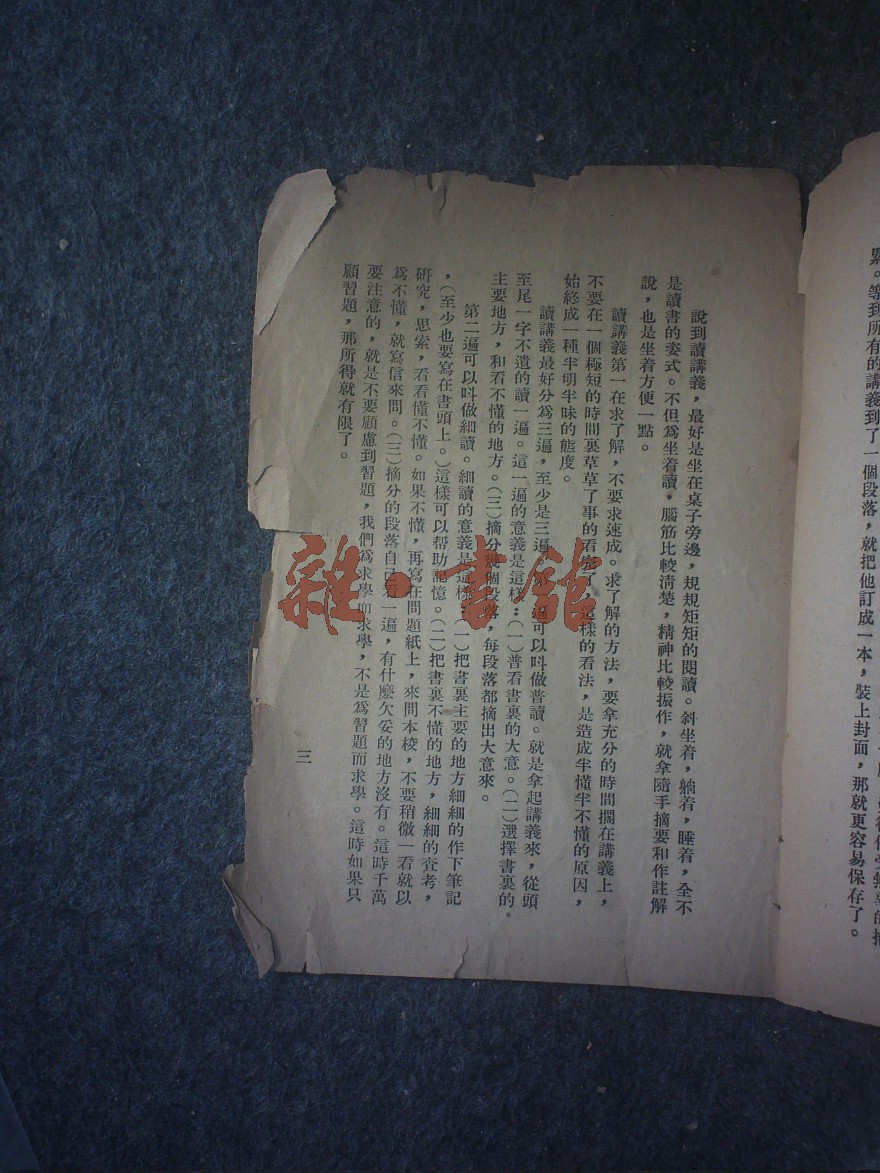 累。等到所有的講義到了一個段落，就把他訂成一本，裝上封面，那就更容易保存了。
說到讀講義，最好是坐在桌子旁邊，規規矩矩的閱讀。斜坐着，躺着，睡着，全不
是讀書的姿式。不但爲坐着讀，腦筋比較清楚，精神比較振作，就拿隨手摘要和作註解
說，也是坐着方便一點。
讀講義第一在求了解，不要求速成。求了解的方法，要拿充分的時間擱在講義上，
不要在一個極短的時間裏草草了事的看完了，這樣的看法，是造成半懂半不懂的原因，
始終成一種半明半昧的態度。
讀講義最好分爲三遍，至少是三遍，第一遍可以叫做普讀。就是拿起講義來，從頭
至尾一字不遺的讀一遍。這一遍的意義是這樣：（一）普看書裏的大意。（二）選擇書裏的
主要地方，和看不懂的地方。（三）摘分幾個段落，每段落都摘出大意來。
第二遍可以叫做細讀。細讀的意義是這樣：（一）把書裏主要的地方細細的作下筆記
，（至少也要寫在書頭上。）這樣可以帮助記憶。（二）把書裏不懂的地方，細細的查考，
研究，思索，看看懂不懂。如果不懂，再寫在問題紙上，來問本校，不要稍微一看就以
爲不懂，就寫信來問。（三）摘分的段落自己看一遍，有什麽欠妥的地方沒有。這時千萬
要注意的，就是不要顧慮到習題，我們爲求學而求學，不是爲習題而求學。這時如果只
顧習題，那所得就有限了。
三
雜·書館